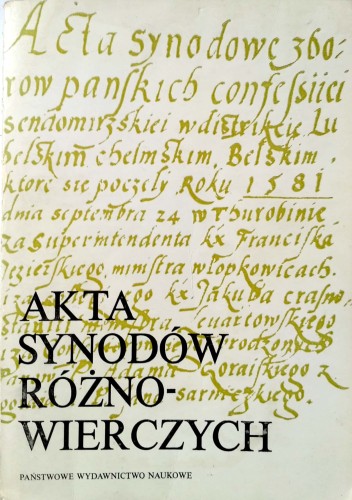 Acta synodowe zbo
row panskich confessiiei
sendomirzskiei w distrikcie Lu
belskim chelmskim, Belskim,
ktore sie poczely Roku 1581
dnia septembra 24 w Thurobinie
za superintendenta kx Franciska
Jezierskiego, ministra wlopkowicach.
kx. Jakuba crasno
czwartowskiego
Adama Goraiskiego z
sarnickiego.
AKTA
SYNODÓW
RÓŻNO-
WIERCZYCH
PAŃSTWOWE WYDAWNICTWO NAUKOWE